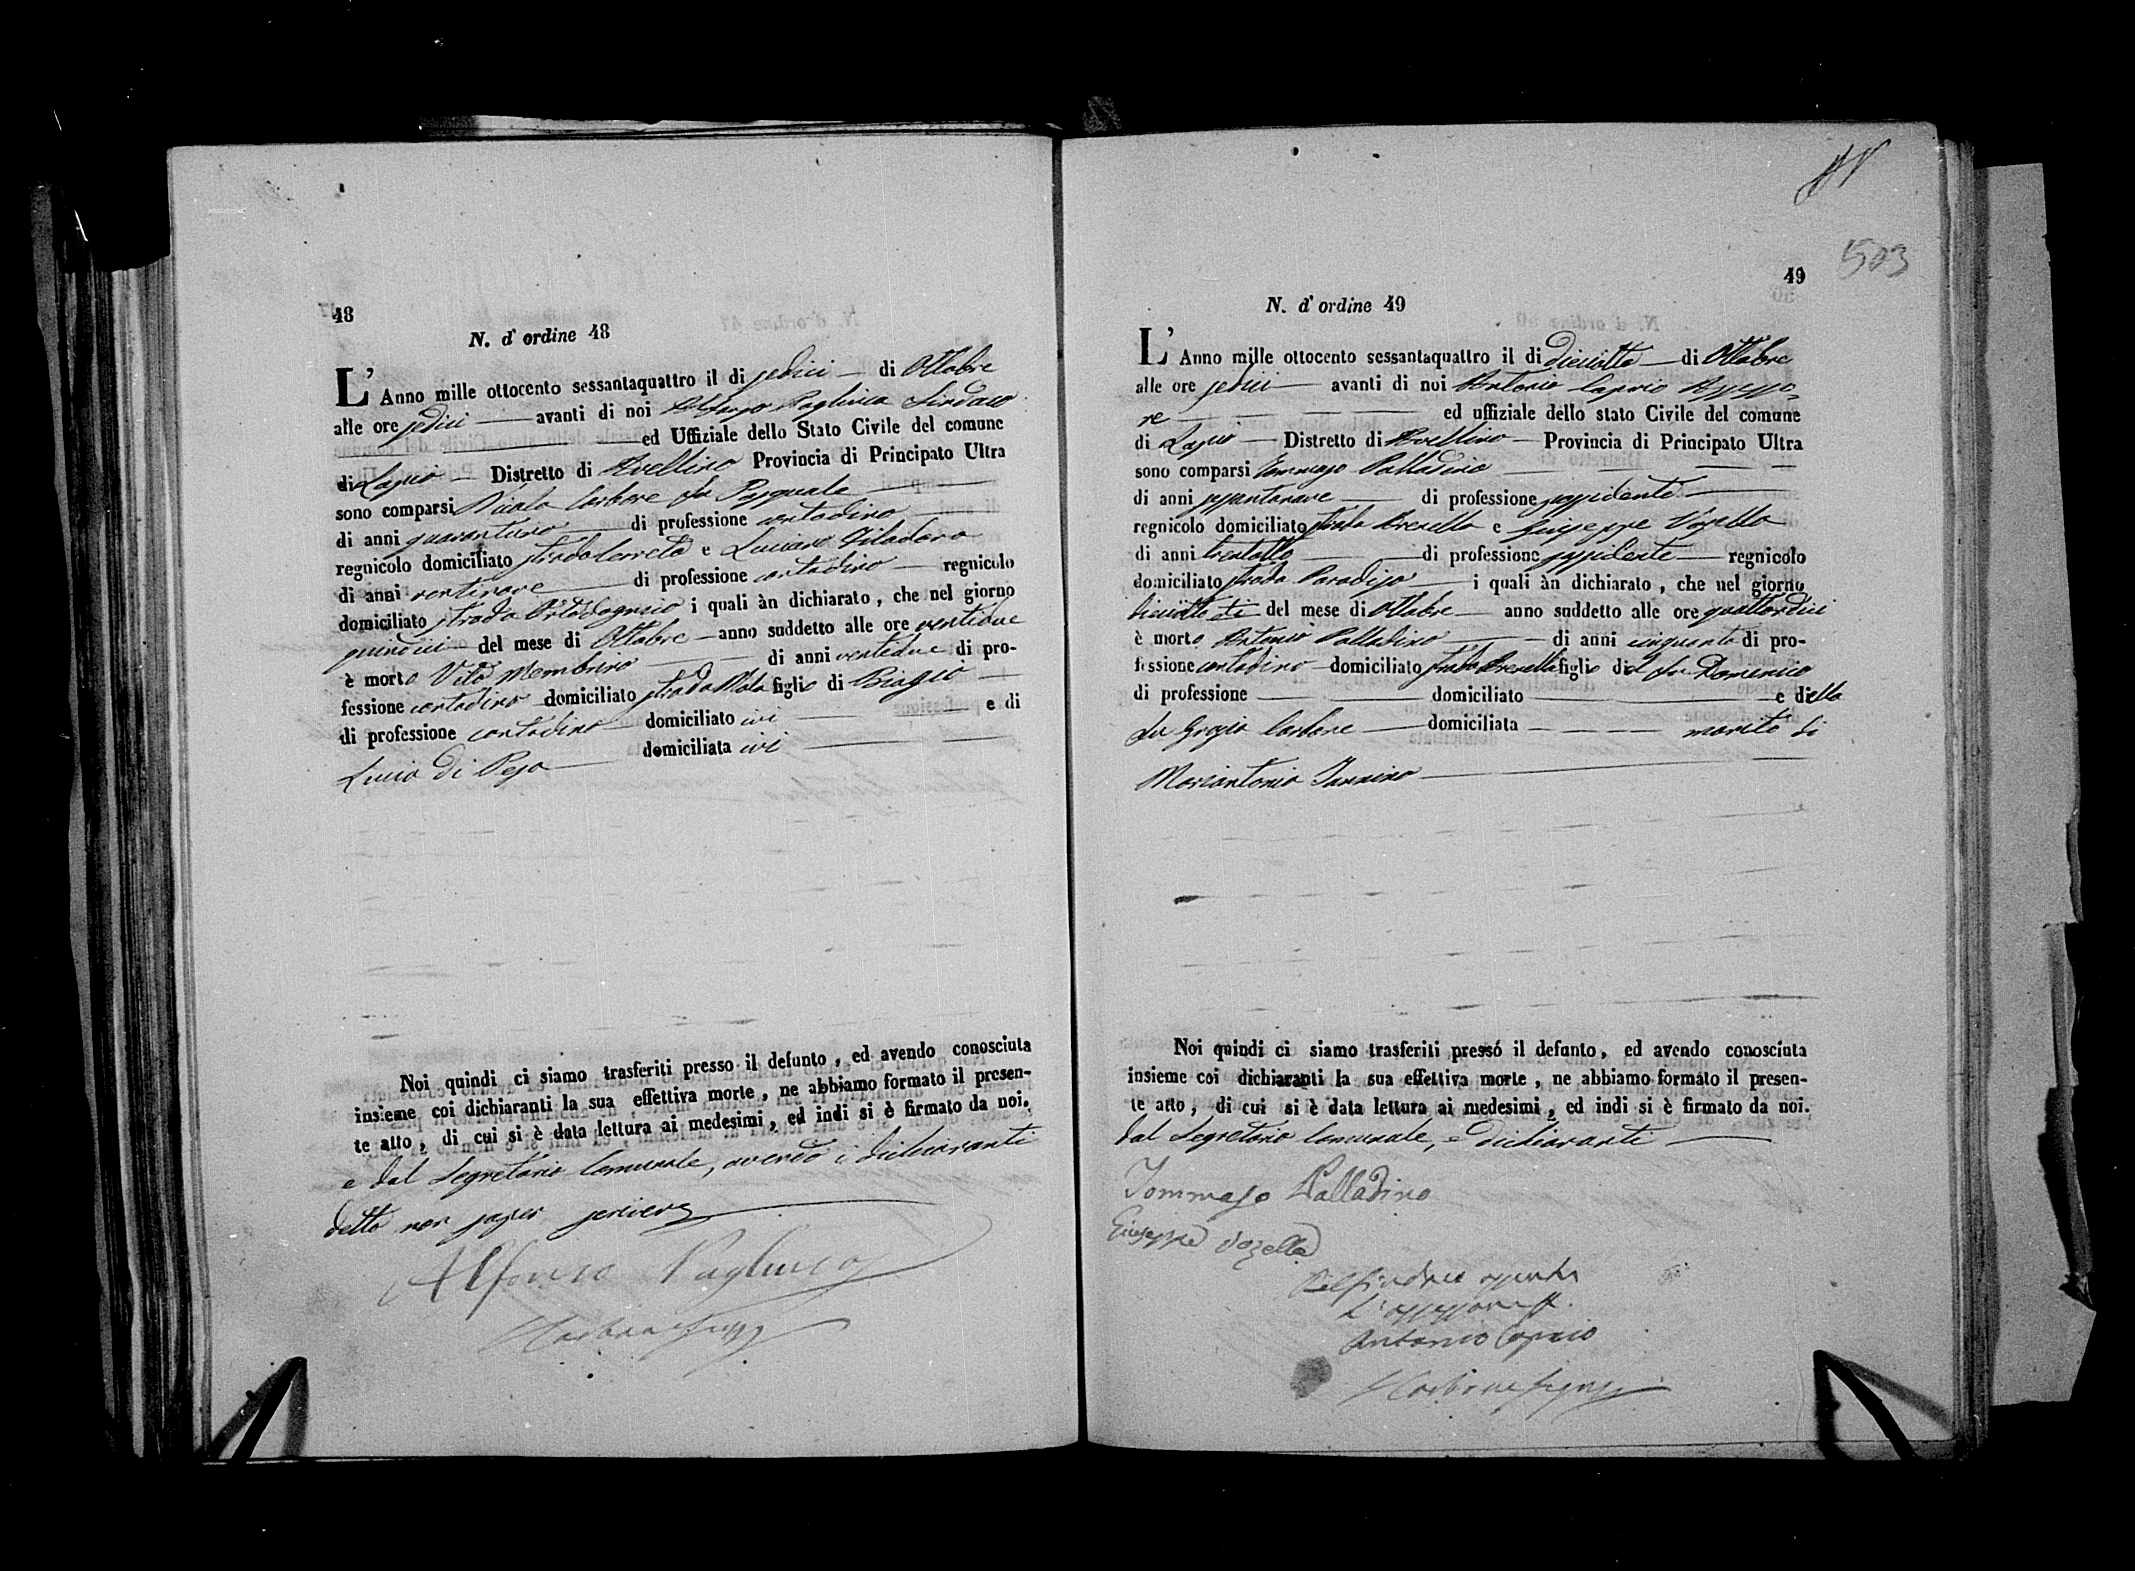 48
N. d'ordine 48
L'Anno mille ottocento sessantaquattro il di sedici di Ottobre
alle ore sedici avanti di noi Alfonso Pagliuca Sindaco
ed Uffiziale dello Stato Civile del comune
di Lapio Distretto di Avellino Provincia di Principato Ultra
sono comparsi Nicola Carbone fu Pasquale
di anni quarantuno di professione contadino
regnicolo domiciliato strada Cerreto e Luciano
di anni ventinove di professione contadino regnicolo
domiciliato strada i quali àn dichiarato, che nel giorno
quindici del mese di Ottobre anno suddetto alle ore ventidue
è morto Vito Membrino di anni ventidue di pro-
fessione contadino domiciliato strada figlio di Biagio
di professione contadino domiciliato ivi e di
Lucia di Peso domiciliata ivi
Noi quindi ci siamo trasferiti presso il defunto, ed avendo conosciuta
insieme coi dichiaranti la sua effettiva morte, ne abbiamo formato il presen-
te atto, di cui si è data lettura ai medesimi, ed indi si è firmato da noi.
e dal Segretario Comunale, avendo i dichiaranti
detto non saper scrivere
Alfonso Pagliuca
Carbone
503
49
N. d'ordine 49
L'Anno mille ottocento sessantaquattro il di diciotto di Ottobre
alle ore sedici avanti di noi Antonio Caprio Assesso-
re ed uffiziale dello stato Civile del comune
di Lapio Distretto di Avellino Provincia di Principato Ultra
sono comparsi Tommaso Palladino
di anni sessantanove di professione possidente
regnicolo domiciliato strada Brenella e Giuseppe Vozella
di anni trentotto di professione possidente regnicolo
domiciliato strada Paradiso i quali àn dichiarato, che nel giorno
diciotto di del mese di Ottobre anno suddetto alle ore quattordici
è morto Antonio Palladino di anni cinquanta di pro-
fessione contadino domiciliato strada Brenella figlio del fu Domenico
di professione domiciliato e della
fu Grazia Carbone domiciliata marito di
Mariantonia Iannino
Noi quindi ci siamo trasferiti presso il defunto, ed avendo conosciuta
insieme coi dichiaranti la sua effettiva morte, ne abbiamo formato il presen-
te atto, di cui si è data lettura ai medesimi, ed indi si è firmato da noi.
dal Segretario Comunale, e dichiaranti
Tommaso Palladino
Giuseppe Vozella
Pel Sindaco assente
L'assessore ff.
Antonio Caprio
Carbone